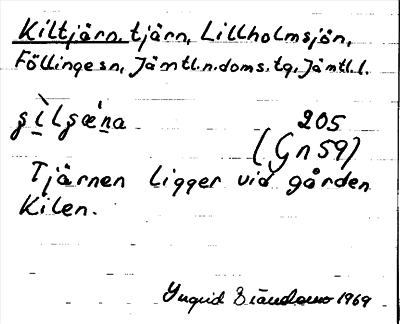 Kiltjärn, tjärn, Lillholmsjön,
Föllinge sn, Jämtl.n.doms.tg, Jämtl.l.
205
(Gn 59)
Tjärnen ligger vid gården
Kilen.
Yngrid 1969